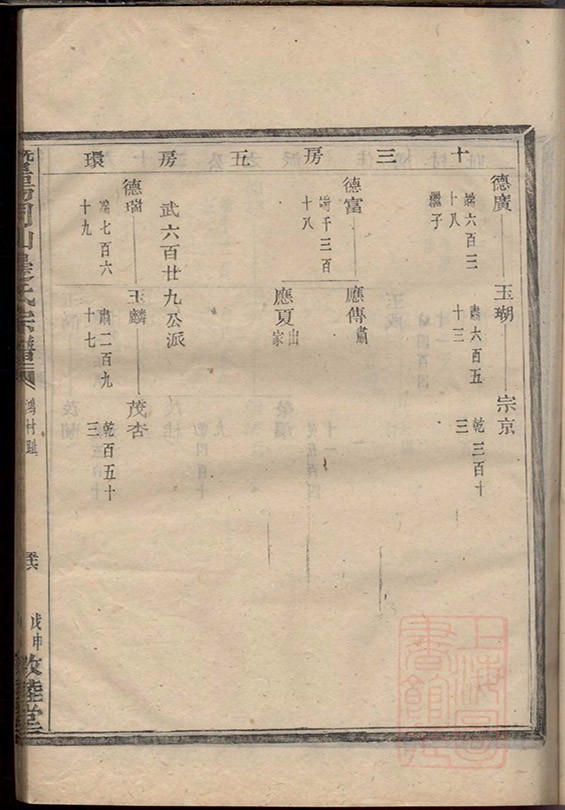 十三房五房環
德廣
端六百三十八
繼子
玉瑚
肅六百五十三
宗京
乾三百十三
德富
端千三百十八
應傳
肅
應夏
出家
武六百廿九公派
德瑞
端七百六十九
玉麟
肅一百九十七
茂杏
乾百五十三
氏宗譜
鴻村
戊申
敦睦堂
上海圖書館藏